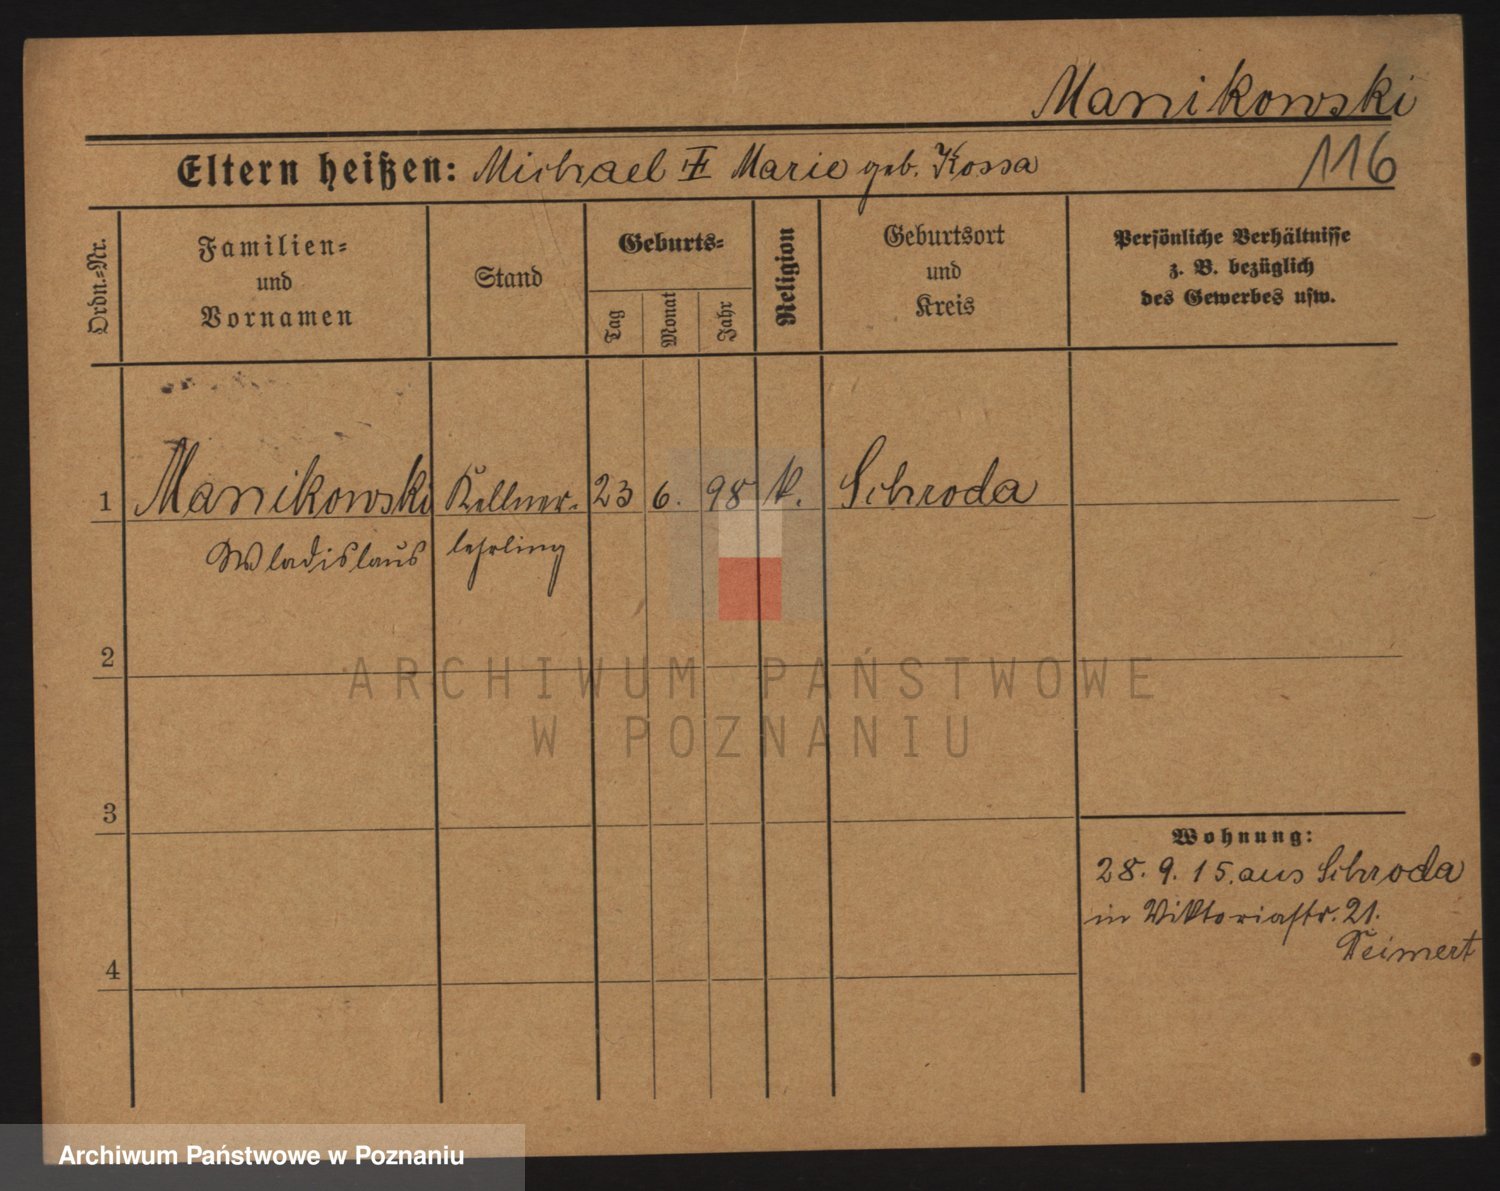 Manikowski
116
Eltern heißen: Michael ‡ Marie geb. Kossa
Ordn.-Nr.
Familien-
und
Vornamen
Stand
Geburts-
Tag
Monat
Jahr
Religion
Geburtsort
und
Kreis
Persönliche Verhältnisse
z. B. bezüglich
des Gewerbes usw.
1 Manikowski Kellner- 23 6. 98 k. Schroda
Wladislaus lehrling
2
3
4
Wohnung:
28. 9. 15. aus Schroda
in Viktoriastr. 21.
ARCHIWUM PAŃSTWOWE
W POZNANIU
Archiwum Państwowe w Poznaniu